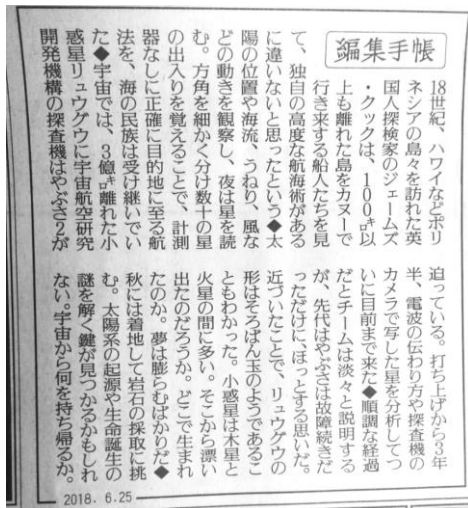 編集手帳
18世紀、ハワイなどポリ
ネシアの島々を訪れた英
国人探検家のジェームズ
・クックは、100㌔以
上も離れた島をカヌーで
行き来する船人たちを見
て、独自の高度な航海術がある
に違いないと思ったという◆太
陽の位置や海流、うねり、風な
どの動きを観察し、夜は星を読
む。方角を細かく分け数十の星
の出入りを覚えることで、計測
器なしに正確に目的地に至る航
法を、海の民族は受け継いでい
た◆宇宙では、3億㌔離れた小
惑星リュウグウに宇宙航空研究
開発機構の探査機はやぶさ2が
迫っている。打ち上げから3年
半、電波の伝わり方や探査機の
カメラで写した星を分析してつ
いに目前まで来た◆順調な経過
だとチームは淡々と説明する
が、先代はやぶさは故障続きだ
っただけに、ほっとする思いだ。
近づいたことで、リュウグウの
形はそろばん玉のようであるこ
ともわかった。小惑星は木星と
火星の間に多い。そこから漂い
出たのだろうか。どこで生まれ
たのか。夢は膨らむばかりだ◆
秋には着地して岩石の採取に挑
む。太陽系の起源や生命誕生の
謎を解く鍵が見つかるかもしれ
ない。宇宙から何を持ち帰るか。
2018. 6.25